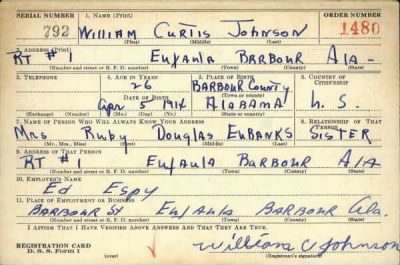 SERIAL NUMBER 1. NAME (Print) ORDER NUMBER
792 William Curtis Johnson 1480
(First) (Middle) (Last)
2. ADDRESS (Print)
RT #1 Eufaula Barbour Ala-
(Number and street or R. F. D. number) (Town) (County) (State)
3. TELEPHONE 4. AGE IN YEARS 5. PLACE OF BIRTH 6. COUNTRY OF CITIZENSHIP
26 Barbour County
DATE OF BIRTH (Town or county)
Apr 5 1914 Alabama U. S.
(Exchange) (Number) (Mo.) (Day) (Yr.) (State or country)
7. NAME OF PERSON WHO WILL ALWAYS KNOW YOUR ADDRESS 8. RELATIONSHIP OF THAT PERSON
Mrs Ruby Douglas Eubanks Sister
(Mr., Mrs., Miss) (First) (Middle) (Last)
9. ADDRESS OF THAT PERSON
RT #1 Eufaula Barbour Ala
(Number and street or R. F. D. number) (Town) (County) (State)
10. EMPLOYER'S NAME
Ed Espy
11. PLACE OF EMPLOYMENT OR BUSINESS
Barbour St Eufaula Barbour Ala.
(Number and street or R. F. D. number) (Town) (County) (State)
I AFFIRM THAT I HAVE VERIFIED ABOVE ANSWERS AND THAT THEY ARE TRUE.
REGISTRATION CARD
D. S. S. Form 1 William C Johnson
(over) (Registrant's signature)